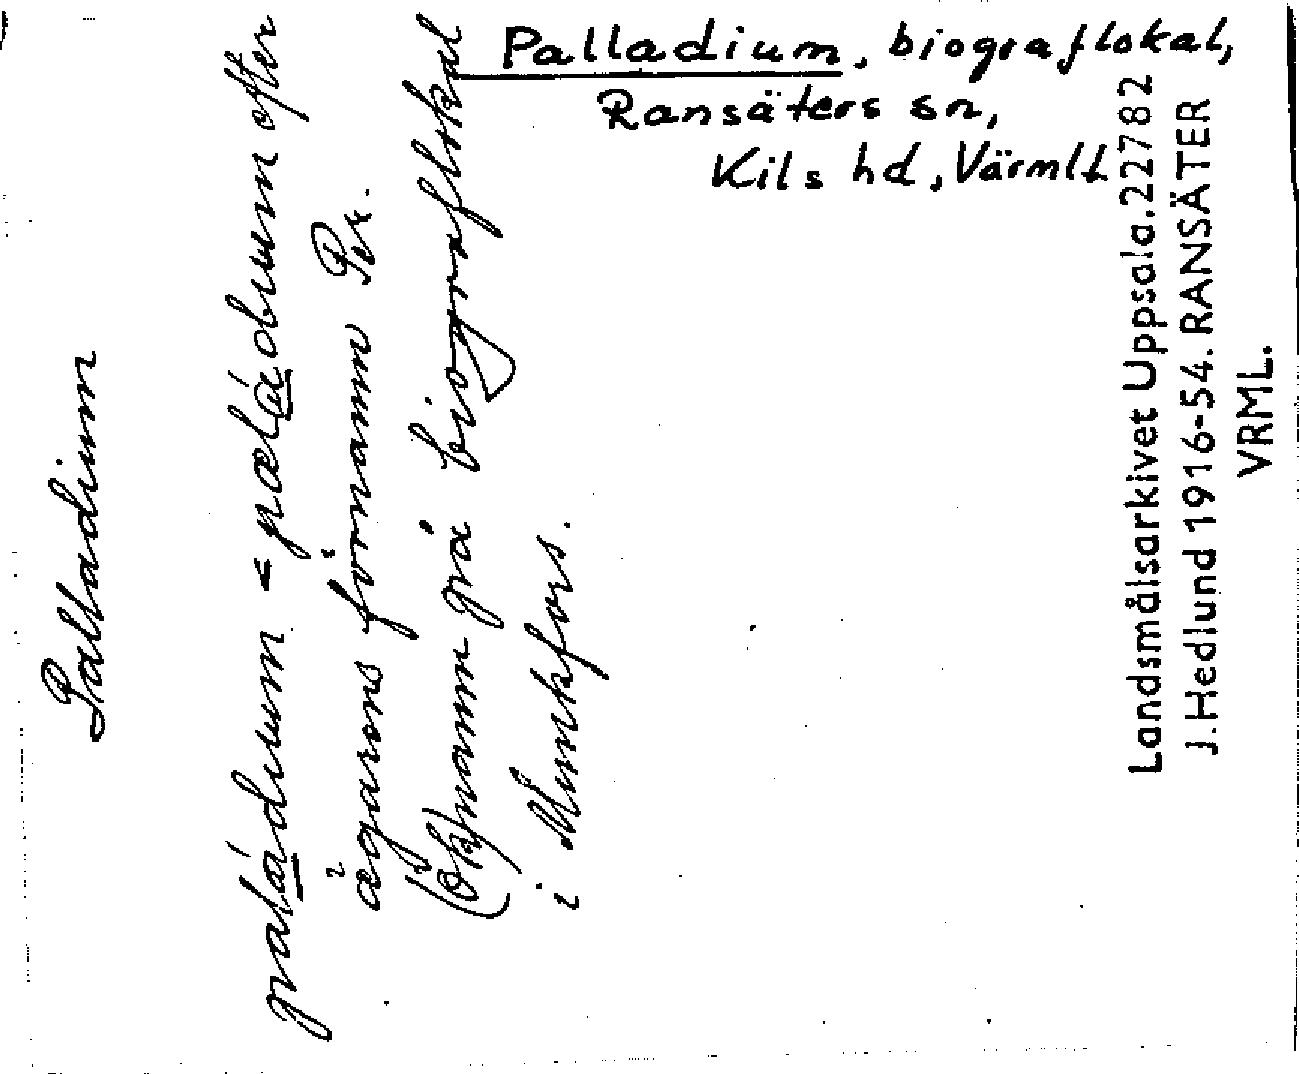 Palladium, biograflokal,
Ransäters sn,
Kils hd, Värml.
Palladium
paládium < pælǽdium efter
ägarens förnamn Per.
(Ök)namn på biograflokal
i Munkfors.
Landsmålsarkivet Uppsala. 22782
J. Hedlund 1916-54. RANSÄTER
VRML.